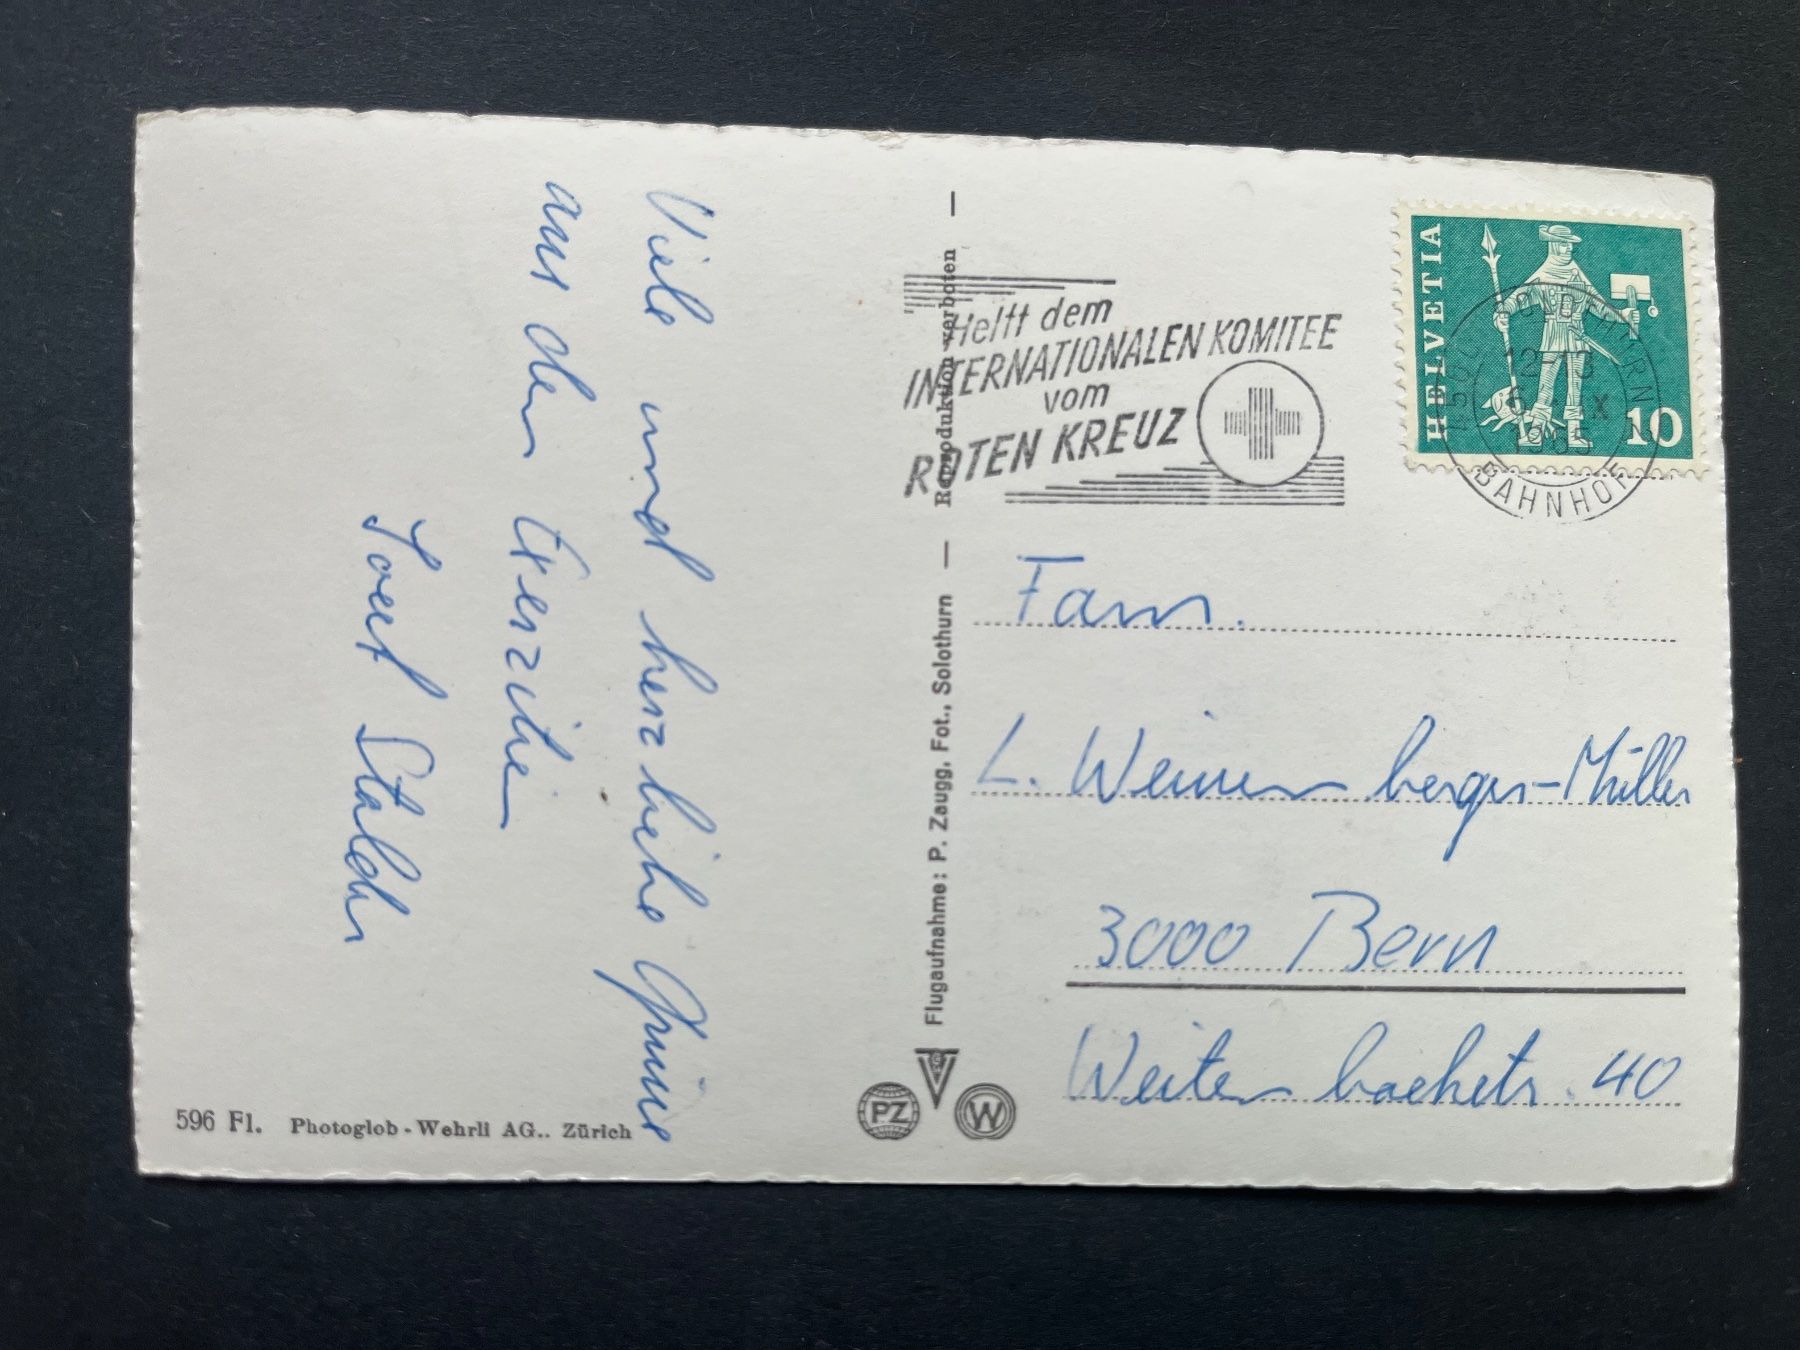 Viele und herzliche Grüsse
aus den Exerzitien
Stalder
596 Fl. Photoglob-Wehrli AG.. Zürich
Flugaufnahme: P. Zaugg, Fot., Solothurn — Reproduktion verboten —
PZ
W
Helft dem
INTERNATIONALEN KOMITEE
vom
ROTEN KREUZ
HELVETIA
10
SOLOTHURN
12-13
1965
BAHNHOF
Fam.
L. Weinenberger-Müller
3000 Bern
40